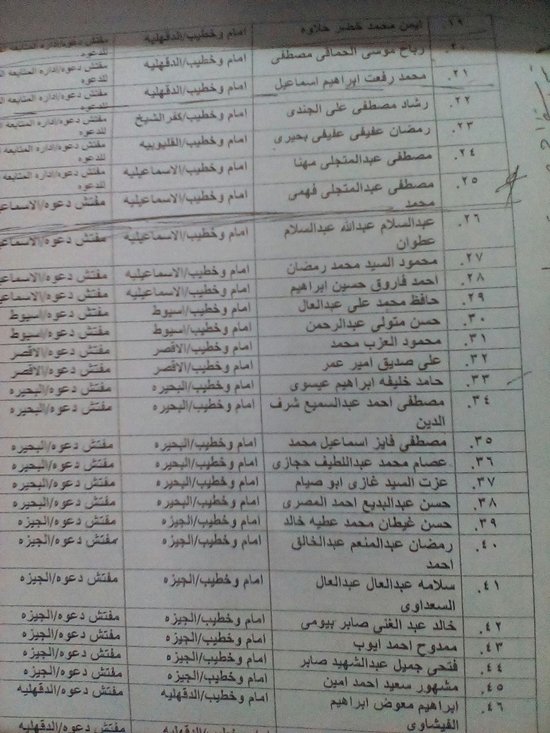 ١٩. ايمن محمد خضر حلاوه امام وخطيب/الدقهليه مفتش دعوه/اداره المتابعه
للدعوه
٢٠. رباح موسى الحمالى مصطفى امام وخطيب/الدقهليه مفتش دعوه/اداره المتابعه
للدعوه
٢١. محمد رفعت ابراهيم اسماعيل امام وخطيب/الدقهليه مفتش دعوه/اداره المتابعه
للدعوه
٢٢. رشاد مصطفى على الجندى امام وخطيب/كفر الشيخ مفتش دعوه/اداره المتابعه
للدعوه
٢٣. رمضان عفيفى عفيفى بحيرى امام وخطيب/القليوبيه مفتش دعوه/اداره المتابعه
للدعوه
٢٤. مصطفى عبدالمتجلى مهنا امام وخطيب/الاسماعيليه مفتش دعوه/اداره المتابعه
للدعوه
٢٥. مصطفى عبدالمتجلى فهمى امام وخطيب/الاسماعيليه مفتش دعوه/الاسماعي
محمد
٢٦. عبدالسلام عبدالله عبدالسلام امام وخطيب/الاسماعيليه مفتش دعوه/الاسماعي
عطوان
٢٧. محمود السيد محمد رمضان امام وخطيب/الاسماعيليه مفتش دعوه/الاسماعي
٢٨. احمد فاروق حسين ابراهيم امام وخطيب/الاسماعيليه مفتش دعوه/الاسماعي
٢٩. حافظ محمد على عبدالعال امام وخطيب/اسيوط مفتش دعوه/اسيوط
٣٠. حسن متولى عبدالرحمن امام وخطيب/اسيوط مفتش دعوه/اسيوط
٣١. محمود العزب محمد امام وخطيب/الاقصر مفتش دعوه/الاقصر
٣٢. على صديق امير عمر امام وخطيب/الاقصر مفتش دعوه/الاقصر
٣٣. حامد خليفه ابراهيم عيسوى امام وخطيب/البحيره مفتش دعوه/البحيره
٣٤. مصطفى احمد عبدالسميع شرف امام وخطيب/البحيره مفتش دعوه/البحيره
الدين
٣٥. مصطفى فايز اسماعيل محمد امام وخطيب/البحيره مفتش دعوه/البحيره
٣٦. عصام محمد عبداللطيف حجازى امام وخطيب/البحيره مفتش دعوه/البحيره
٣٧. عزت السيد غازى ابو صيام امام وخطيب/البحيره مفتش دعوه/البحيره
٣٨. حسن عبدالبديع احمد المصرى امام وخطيب/البحيره مفتش دعوه/البحيره
٣٩. حسن غيطان محمد عطيه خالد امام وخطيب/الجيزه مفتش دعوه/الجيزه
٤٠. رمضان عبدالمنعم عبدالخالق امام وخطيب/الجيزه مفتش دعوه/الجيزه
احمد
٤١. سلامه عبدالعال عبدالعال امام وخطيب/الجيزه مفتش دعوه/الجيزه
السعداوى
٤٢. خالد عبد الغنى صابر بيومى امام وخطيب/الجيزه مفتش دعوه/الجيزه
٤٣. ممدوح احمد ايوب امام وخطيب/الجيزه مفتش دعوه/الجيزه
٤٤. فتحى جميل عبدالشهيد صابر امام وخطيب/الجيزه مفتش دعوه/الجيزه
٤٥. مشهور سعيد احمد امين امام وخطيب/الجيزه مفتش دعوه/الجيزه
٤٦. ابراهيم معوض ابراهيم امام وخطيب/الدقهليه مفتش دعوه/الدقهليه
الفيشاوى
امام وخطيب/الدقهليه مفتش دعوه/الدقهليه